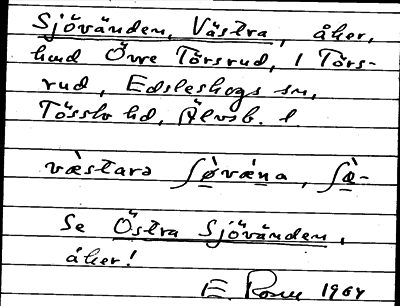 Sjövänden, Västra, åker,
hmd Övre Törsrud, 1 Törs-
rud, Edsleskogs sn,
Tössbo hd, Älvsb. l
væ̀starə ʃø̀vǽna, ʃæ̀-
Se Östra Sjövänden,
åker!
E. 1964